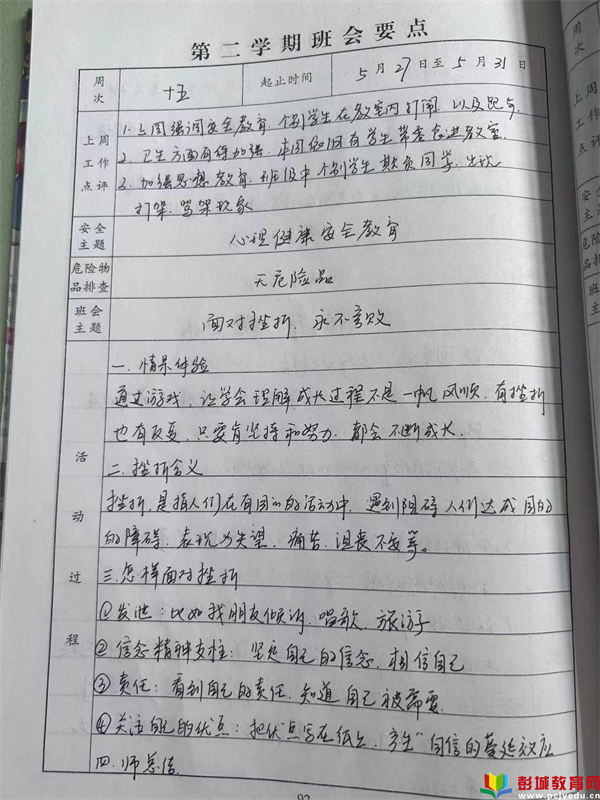 第二学期班会要点
周次 十五 起止时间 5月27日至5月31日
上周工作点评
1.上周强调安全教育,个别学生在教室内打闹,以及
2.卫生方面有待加强,本周仍旧有学生带零食进教室
3.加强思想教育,班级中个别学生欺负同学,出现
打架、骂架现象
安全主题 心理健康安全教育
危险物品排查 无危险品
班会主题 面对挫折,永不言败
活动过程
一.情景体验
通过游戏,让学会理解成长过程不是一帆风顺,有挫折
也有反复,只要肯坚持和努力,都会不断成长。
二.挫折含义
挫折,是指人们在有目的的活动中,遇到阻碍人们达成目的
的障碍,表现为失望、痛苦、沮丧不安等。
三.怎样面对挫折
①发泄:比如找朋友倾诉、唱歌、旅游
②信念精神支柱:坚定自己的信念,相信自己
③责任:看到自己的责任,知道自己被需要
④关注自己的优点:把优点写在纸上,产生"自信的蔓延效应
四.师总结
92
彭城教育网
www.pcjyedu.cn